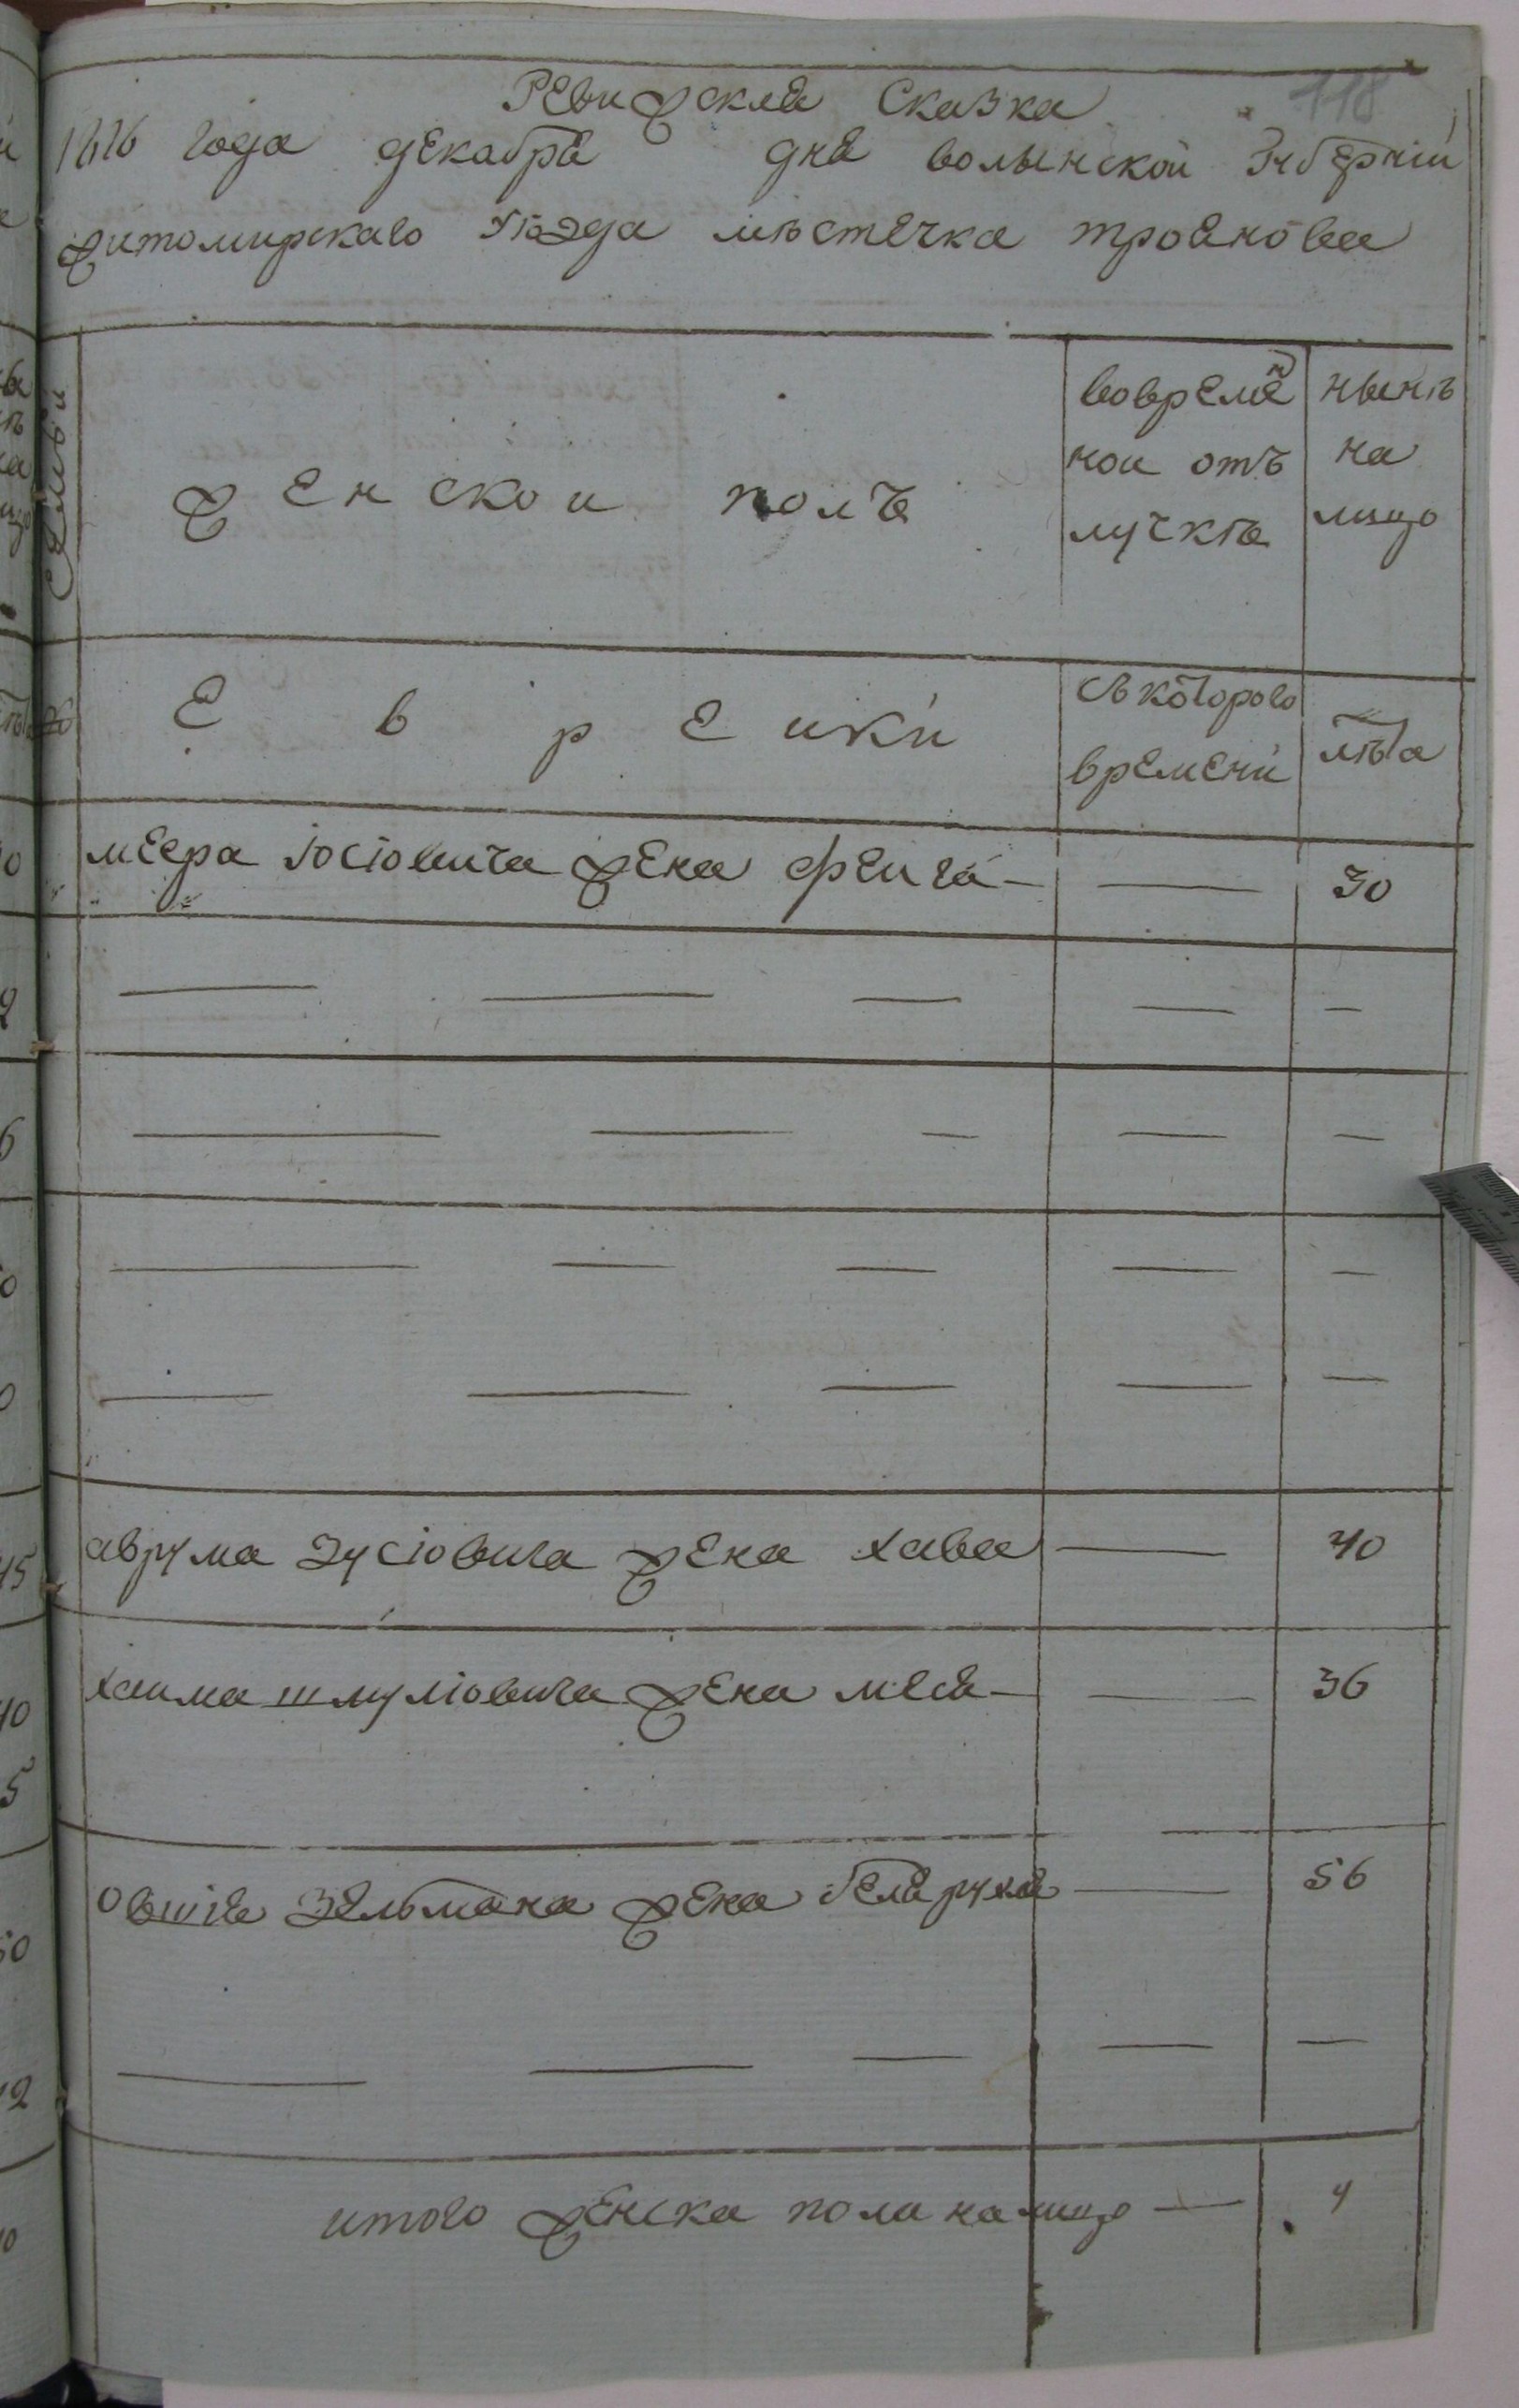 118
Ревижская Сказка
1816 года декабря дня волынской Губернїи
житомирскаго уѣзда мѣстечка троянова
Семьи
женской полъ
вовремен
ной отъ
лучкѣ
нынѣ
на
лицо
Еврейки
съкоторого
времени
лѣта
меера Іосіовича жена фейга — — 30
аврума Зусіовича жена хава — 40
хаима шмуліовича жена мася — — 36
овшія Зельмана жена белярухля — 56
итого женска пола налицо — 4